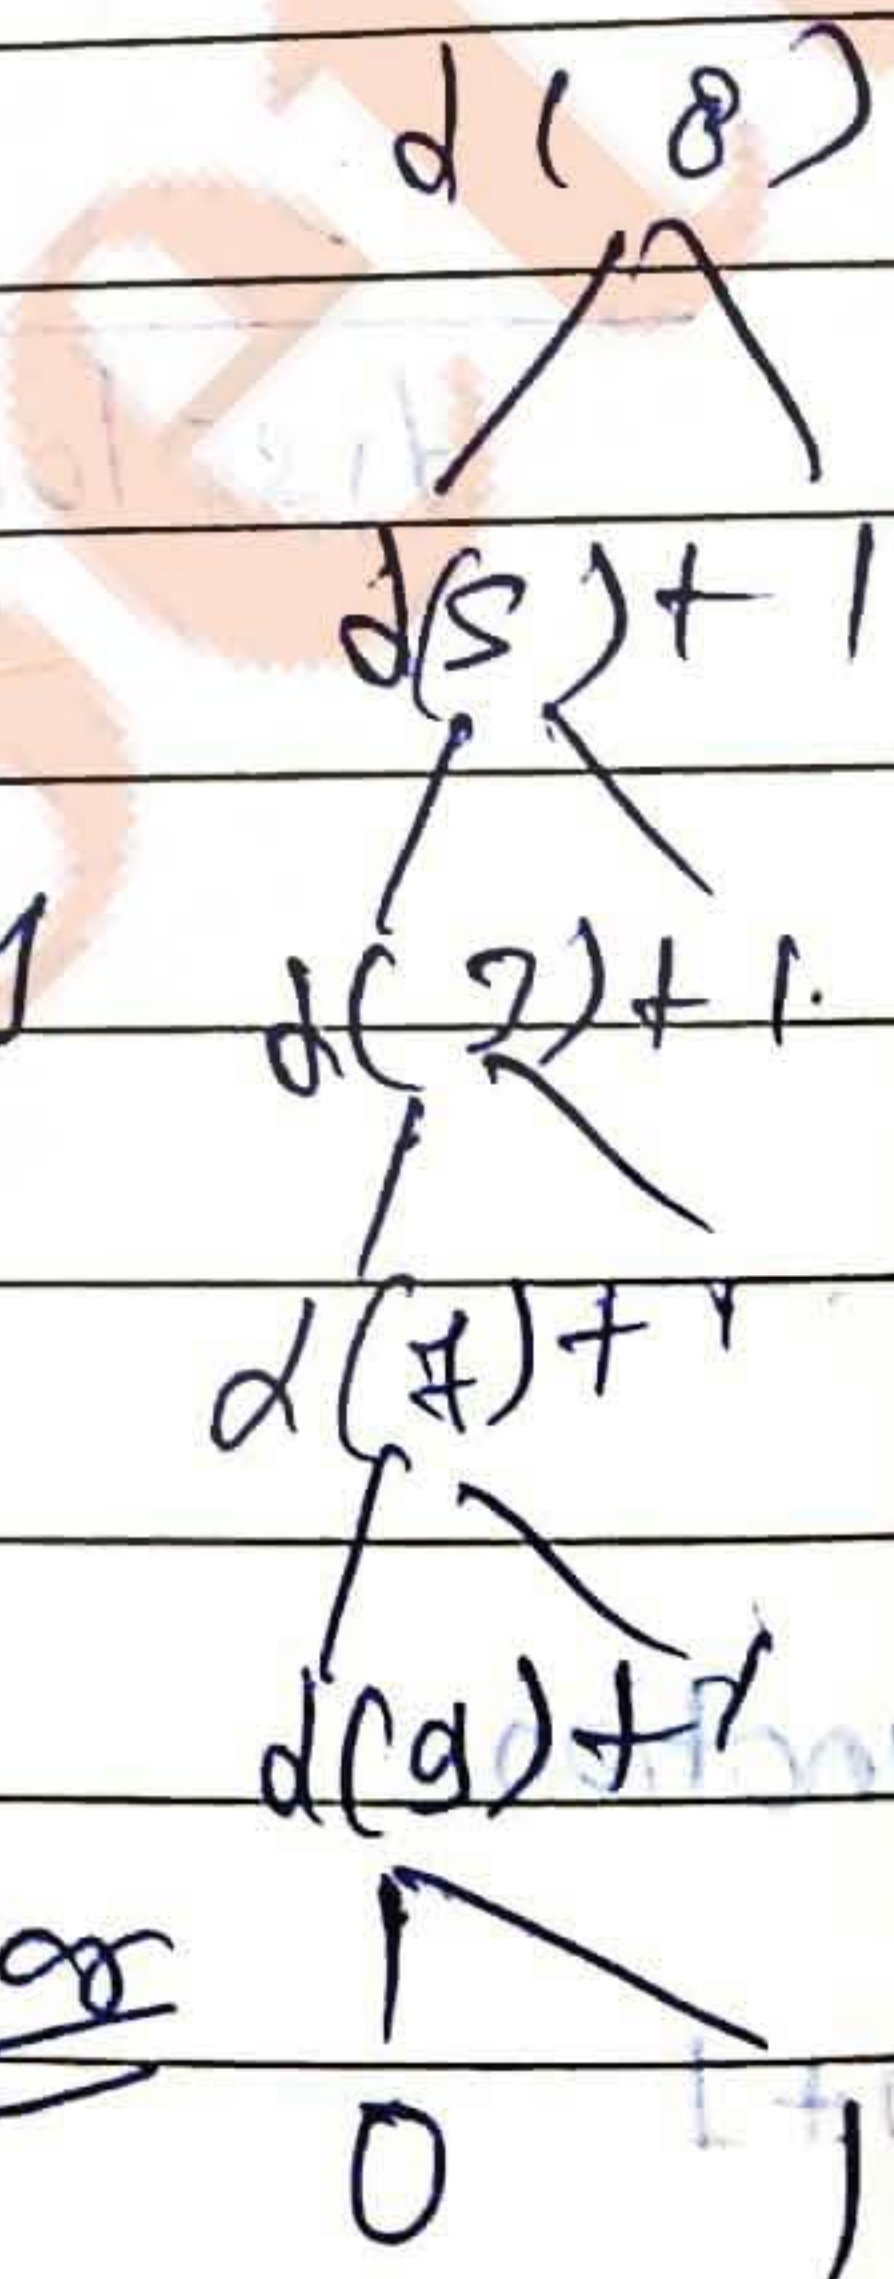 d ( 8 )
d(5 ) + 1
d( 2) + 1.
d (7) + 1
d(9) + 1
0 1